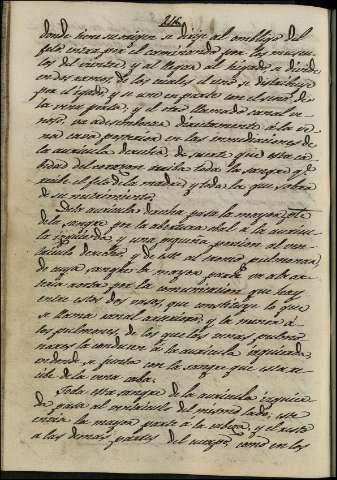 216.
donde tiene su origen se dirije al ombligo del
feto entra por el caminando por los muscu-
los del vientre y al llegar al higado se divide
en dos ramos, de los cuales el uno se distribuye
por el igado y se une en parte con el seno de
la vena porta, y el otro llamado canal ve-
noso, va a desembocar directamente á la ve-
na cava proxima en las inmediaciones de
la auricula derecha, de suerte que esta ca-
bidad del corazon reciba toda la sangre q.e
recibe el feto de la madre y toda la que sobra
de su nutrimiento.
Dela auricula derecha pasa la mayor p.te
de la sangre por la abertura obal a la auricu-
la izquierda, y una pequeña porcion al ven-
triculo derecho, y de este al tronco pulmonar,
de cuya sangre la mayor parte va ala ar-
teria aorta por la comunicacion que hay
entre estos dos vasos, que constituye lo que
se llama canal arterioso, y la menor á
los pulmones, de los que las venas pulmo-
nares la conducen á la auricula izquierda,
en donde se junta con la sangre que esta re-
cibe de la vena caba.
Toda esta sangre de la auricula izquier-
da pasa al ventriculo del mismo lado, este
envia la mayor parte a la cabeza, y el resto
a las demas partes del cuerpo, como en los